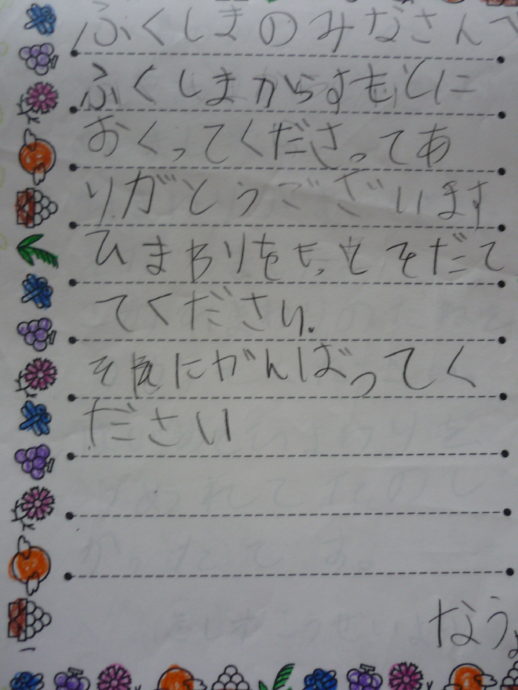 ふくしまのみなさんへ
ふくしまからすもとに
おくってくださってあ
りがとうございます
ひまわりをもっとそだて
てください。
にがんばってく
ださい
なう